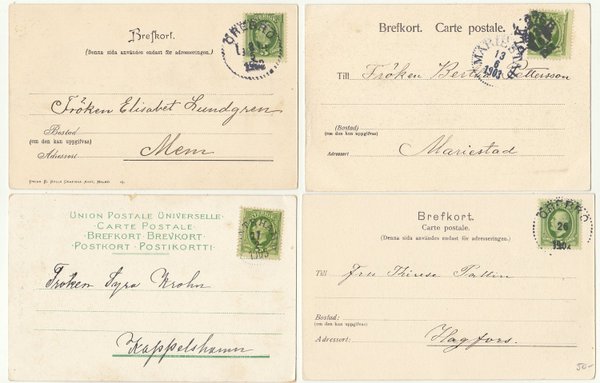 Brefkort.
(Denna sida användes endast för adresseringen.)
ÖREBRO
1902
Fröken Elisabet Lundgren
Bostad
(om den kan uppgifvas)
Adressort
Mem
Brefkort. Carte postale.
MARIESTAD
13
6
1903
Till Fröken Pettersson
(Bostad)
(om den kan uppgifvas)
Adressort
Mariestad
UNION POSTALE UNIVERSELLE
CARTE POSTALE
BREFKORT BREVKORT
POSTKORT POSTIKORTTI
1903
Fröken Syra Krohn
Kappelshamn
Brefkort.
Carte postale.
(Denna sida användes endast för adresseringen.)
ÖREBRO
26
1902
Till
Bostad:
(om den kan uppgifvas)
Adressort: Hagfors.
50-